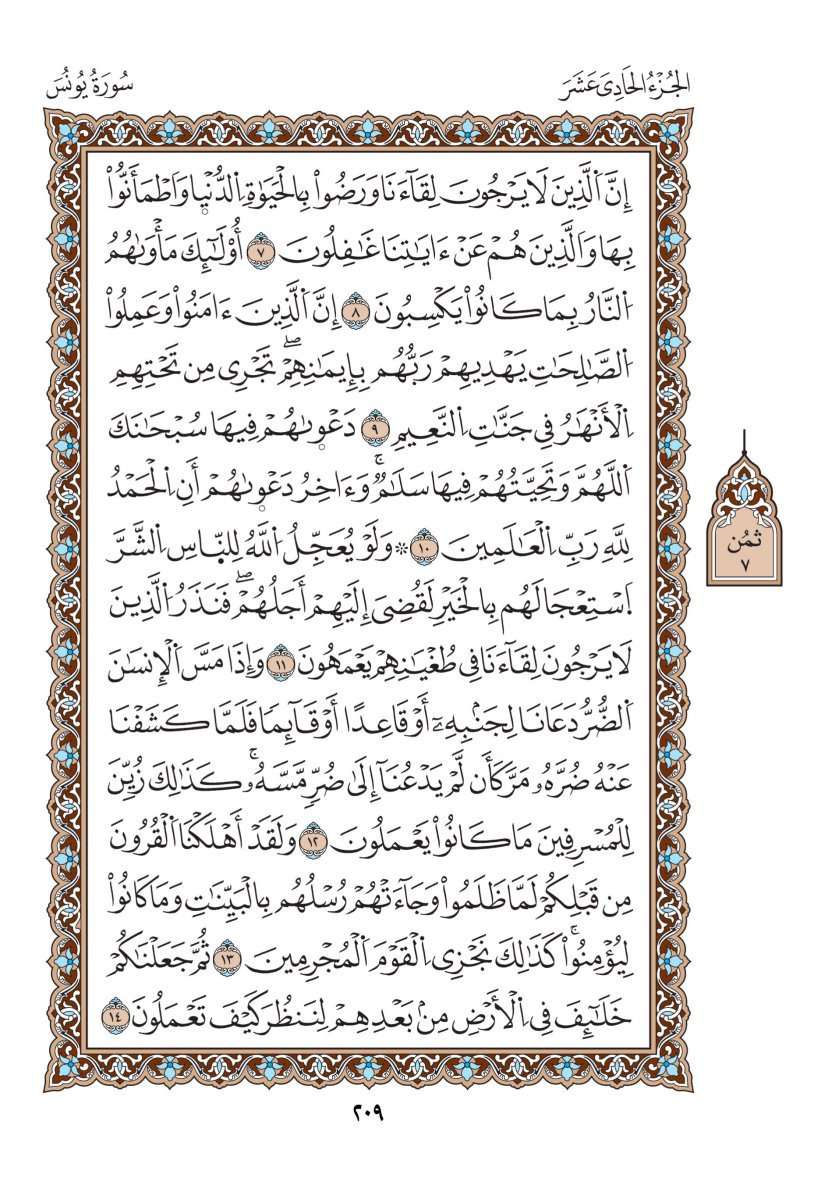 الجُزْءُ الحَادِى عَشَرَ
سُورَةُ يُونُسَ
إِنَّ اَ۬لَّذِينَ لَا يَرْجُونَ لِقَآءَنَا وَرَضُواْ بِالْحَيَوٰةِ اِ۬لدُّنْي۪ا وَاَطْمَأَنُّواْ
بِهَا وَالَّذِينَ هُمْ عَنْ ءَايَٰتِنَا غَٰفِلُونَ ٧ أُوْلَٰٓئِكَ مَأْوَىٰهُمُ
اُ۬لنَّارُ بِمَا كَانُواْ يَكْسِبُونَ ٨ إِنَّ اَ۬لَّذِينَ ءَامَنُواْ وَعَمِلُواْ
اُ۬لصَّٰلِحَٰتِ يَهْدِيهِمْ رَبُّهُم بِإِيمَٰنِهِمْۖ تَجْرِى مِن تَحْتِهِمِ
اِ۬لْأَنْهَٰرُ فِى جَنَّٰتِ اِ۬لنَّعِيمِ ٩ دَعْو۪ىٰهُمْ فِيهَا سُبْحَٰنَكَ
اَ۬للَّهُمَّ وَتَحِيَّتُهُمْ فِيهَا سَلَٰمٌۚ وَءَاخِرُ دَعْو۪ىٰهُمْ أَنِ اِ۬لْحَمْدُ
لِلَّهِ رَبِّ اِ۬لْعَٰلَمِينَ ١٠ ۞ وَلَوْ يُعَجِّلُ اُ۬للَّهُ لِلنَّاسِ اِ۬لشَّرَّ
اَ۪سْتِعْجَالَهُم بِالْخَيْرِ لَقُضِىَ إِلَيْهِمْ أَجَلُهُمْۖ فَنَذَرُ اُ۬لَّذِينَ
لَا يَرْجُونَ لِقَآءَنَا فِى طُغْيَٰنِهِمْ يَعْمَهُونَ ١١ وَإِذَا مَسَّ اَ۬لْإِنسَٰنَ
اَ۬لضُّرُّ دَعَانَا لِجَنۢبِهِۦٓ أَوْ قَاعِدًا أَوْ قَآئِمًا فَلَمَّا كَشَفْنَا
عَنْهُ ضُرَّهُۥ مَرَّ كَأَن لَّمْ يَدْعُنَآ إِلَىٰ ضُرٍّ مَّسَّهُۥۚ كَذَٰلِكَ زُيِّنَ
لِلْمُسْرِفِينَ مَا كَانُواْ يَعْمَلُونَ ١٢ وَلَقَدْ أَهْلَكْنَا اَ۬لْقُرُونَ
مِن قَبْلِكُمْ لَمَّا ظَلَمُواْ وَجَآءَتْهُمْ رُسْلُهُم بِالْبَيِّنَٰتِ وَمَا كَانُواْ
لِيُؤْمِنُواْۚ كَذَٰلِكَ نَجْزِى اِ۬لْقَوْمَ اَ۬لْمُجْرِمِينَ ١٣ ثُمَّ جَعَلْنَٰكُمْ
خَلَٰٓئِفَ فِى اِ۬لْأَرْضِ مِنۢ بَعْدِهِمْ لِنَنظُرَ كَيْفَ تَعْمَلُونَ ١٤
ثمُن
٧
٢٠٩